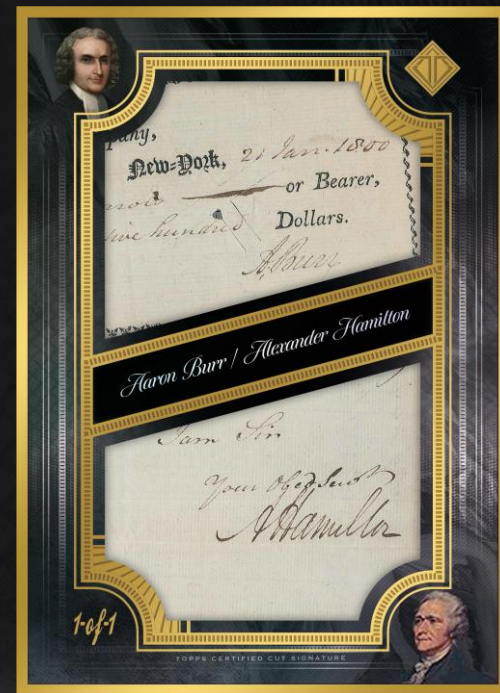 pany,
New=York, 21 Jan. 1800
or Bearer,
five hundred Dollars.
A. Burr
Aaron Burr / Alexander Hamilton
I am Sir
Your Obed Servt
A Hamilton
1-of-1
TOPPS CERTIFIED CUT SIGNATURE